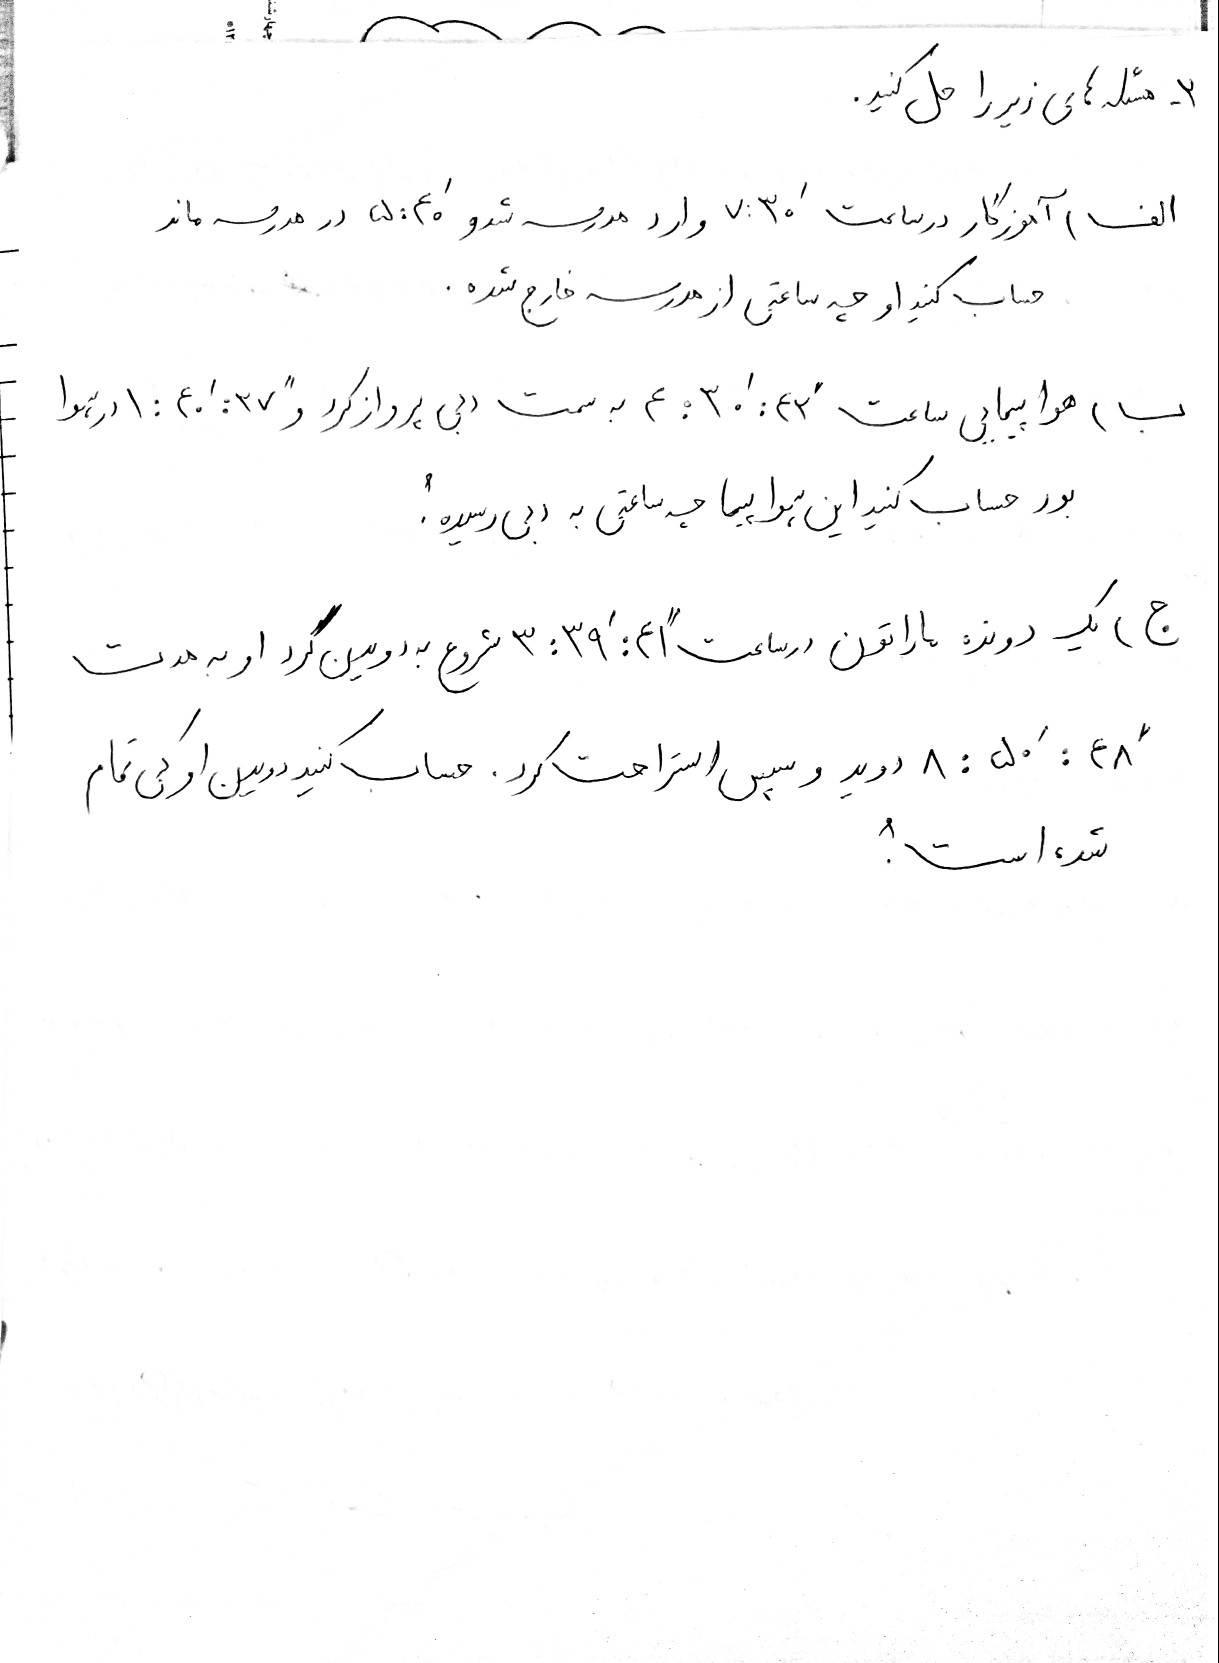 ۲- مسئله های زیر را حل کنید.
الف) آموزگار در ساعت ۷:۳۰′ وارد مدرسه شد و ۵:۴۰′ در مدرسه ماند
حساب کنید او چه ساعتی از مدرسه خارج شده.
ب) هواپیمایی ساعت ۴:۳۰′:۴۲″ به سمت دبی پرواز کرد و ۱:۴۰′:۳۷″ در هوا
بود حساب کنید این هواپیما چه ساعتی به دبی رسیده؟
ج) یک دونده ماراتون در ساعت ۳:۳۹′:۴۱″ شروع به دویدن کرد او به مدت
۸:۵۰′:۴۸″ دوید و سپس استراحت کرد. حساب کنید دویدن او کی تمام
شده است؟